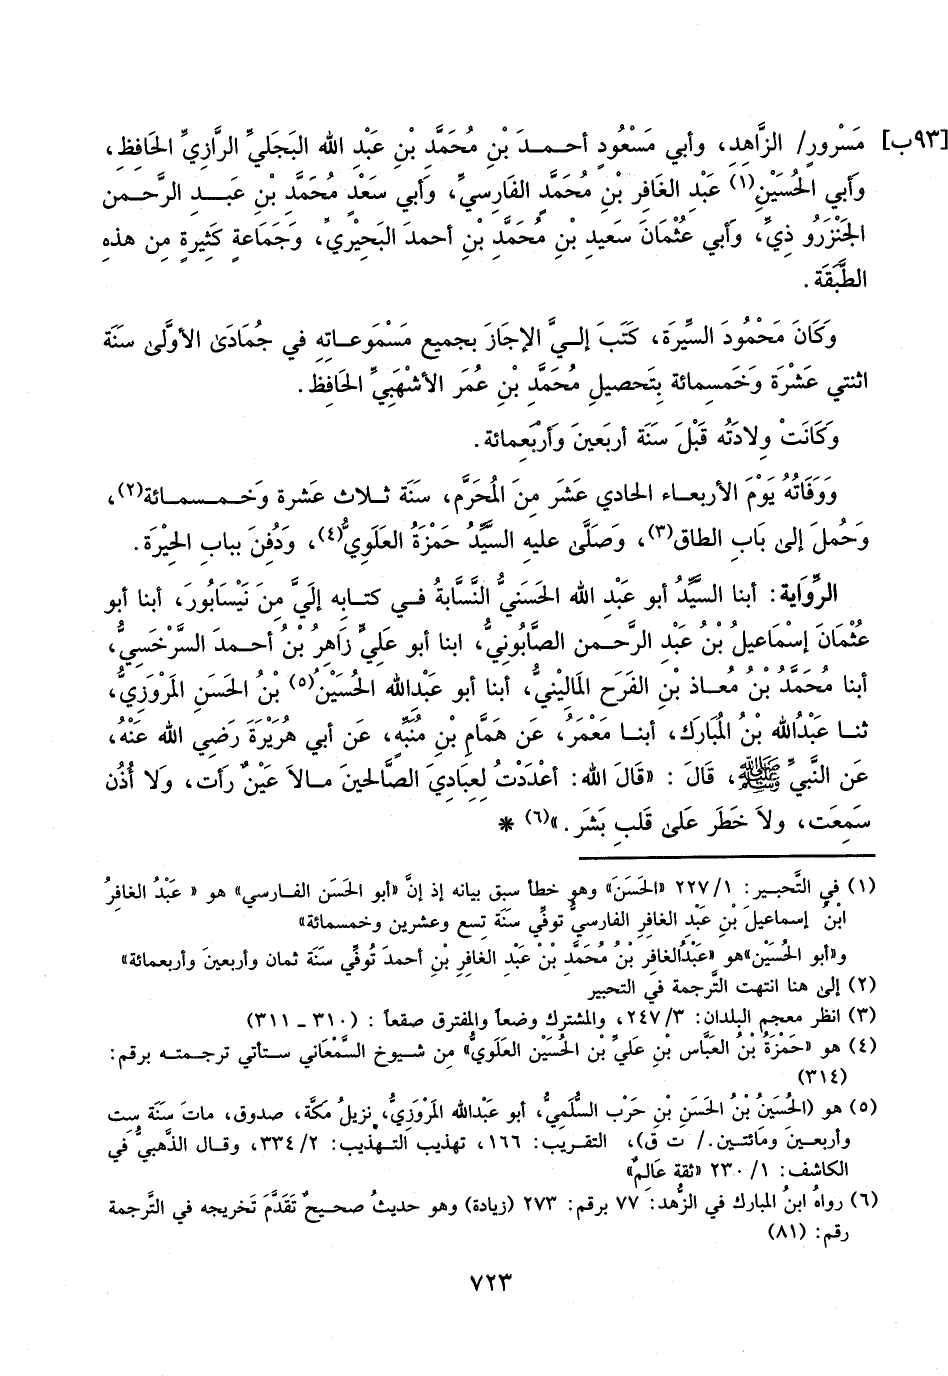 [٩٣ب] مَسْرورٍ/ الزَّاهِدِ، وأبي مَسْعُودٍ أحـمـدَ بْنِ مُحَمَّدِ بْنِ عَبْدِ الله البَجَليِّ الرَّازيِّ الحَافِظِ،
وأبي الحُسَيْنِ(١) عَبْدِ الغَافِرِ بْنِ مُحَمَّدٍ الفَارسيِّ، وَأبي سَعْدٍ مُحَمَّدِ بْنِ عَبــدِ الرَّحـمن
الجَنْزَرُو ذيِّ، وَأبي عُثْمَانَ سَعيدِ بْنِ مُحَمَّدِ بْنِ أحمدَ البَحيْريِّ، وَجَمَاعَةٍ كَثيرَةٍ مِن هذه
الطَّبَقَة .
وَكَانَ مَحْمُودَ السيِّرَة، كَتَبَ إلـيَّ الإجَازَ بجميع مَسْمَوعـاتِهِ في جُمَادَىٰ الأولَّىٰ سنَة
اثنتي عَشْرَةَ وَخَمسِمائة بِتَحصيلِ مُحَمَّدِ بْنِ عُمَرَ الأشْهَبيِّ الحَافِظ .
وَكَانَتْ وِلادَتُه قَبْلَ سَنَة أربَعينَ وَأرْبَعمائة .
وَوَفَاتُهُ يَوْمَ الأربعـاء الحادي عَشَر مِنَ المُحَرَّم، سَنَة ثـلاث عَشرة وَخَـمـسـمـائة(٢)،
وَحُملَ إلىٰ بَابِ الطاق(٣)، وَصَلَّىٰ عليه السَيِّدُ حَمْزَةُ العَلَويُّ(٤)، وَدُفِنَ بباب الحِيْرَة .
الرِّوَاية: أبنا السيِّدُ أبو عَبْدِ الله الحَسَنيُّ النَّسَّابةُ فـي كتـابِه إلَيَّ مِنَ نَيْسَابُورَ، أبنا أبو
عُثْمَانَ إسْمَاعيلُ بْنُ عَبْدِ الرَّحـمن الصَّابُونيُّ، ابنا أبو عَليٍّ زَاهِرُ بْنُ أحـمدَ السَّرْخَسيُّ،
أبنا مُحَمَّدُ بْنُ مُعَـاذ بْنِ الفَرَح المَالِينيُّ، أبنا أبو عَبْدالله الحُسَيْنُ(٥) بْنُ الحَسَنِ المَرْوَزيُّ،
ثنـا عَبْدُالله بْنُ المُبَارَك، أبنـا مَعْمَرُ، عَن هَمَّامِ بْنِ مُنَبِّهٍ، عَن أبي هُرَيْرَةَ رَضِي الله عَنْهُ،
عَن النَّبيِّ ﷺ، قَالَ : «قَالَ الله: أعْدَدْتُ لِعِبَاديَ الصَّالحينَ مـالاَ عَيْنٌ رأَت، وَلا أُذُن
سَمِعَت، ولاَ خَطَر عَلىٰ قَلبِ بَشَر .»(٦) *
(١) في التَّحبير: ٢٢٧/١ «الحَسَنَ» وهو خطأ سبق بيانه إذ إنَّ «أبو الحَسَن الفـارسي» هو « عَبْدُ الغافِرُ
ابْنُ إسماعيلَ بْنِ عَبدِ الغافِرِ الفارسيُّ توفِّي سنَة تسع وعشرين وخمسمائة»
و«أبو الحُسَيْن»هو «عَبدُالغافِر بْنُ مُحَمَّدِ بْنْ عَبْدِ الغافِر بْنِ أحمدَ تُوفِّي سَنَة ثمان وأربعينَ وأربعمائة»
(٢) إلىٰ هنا انتهت التَّرجمة في التحبير
(٣) انظر معجم البلدان: ٢٤٧/٣، والمشترك وضعاً والمفترق صقعاً : (٣١٠ ـ ٣١١)
(٤) هو «حَمْزَةُ بْنُ العَبَّاس بْنِ عَليِّ بْنِ الحُسَيْن العَلَويُّ» مِن شـيـوخ السَّمْعَاني سـتأتي ترجـمتـه برقم:
(٣١٤)
(٥) هو (الحُسَينُ بْنُ الحَسَن بْنِ حَرْب السُّلَميُّ، أبو عَبْدالله المَرْوَزيُّ، نزيلُ مكَّة، صدوق، ماتَ سَنَة ست
وأربعـينَ ومَائتـين./ ت ق)، التقريب: ١٦٦، تهذيب التـهذيب: ٣٣٤/٢، وقـال الذَّهبيُّ في
الكاشف: ٢٣٠/١ «ثقة عَالِمٌ»
(٦) رواهُ ابنُ المبارك في الزُّهد: ٧٧ برقم: ٢٧٣ (زيادة) وهو حديثُ صحـيحٌ تَقَدَّمَ تَخريجه في التَّرجمة
رقم: (٨١)
٧٢٣